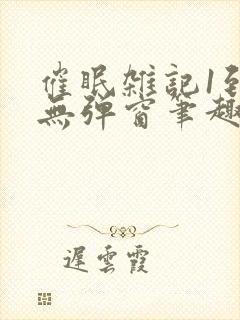 催眠雑記1到
無弹窗筆趣
遲雲霞